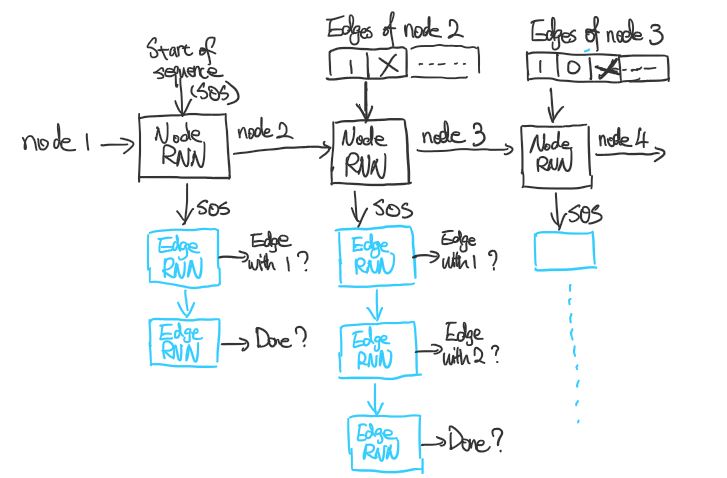 Start of
sequence
(SOS)
Edges of node 2
1 X -----
Edges of node 3
1 0 X -----
node 1
Node
RNN
node 2
Node
RNN
node 3
Node
RNN
node 4
SOS
SOS
SOS
Edge
RNN
Edge
with 1?
Edge
RNN
Edge
with 1?
Edge
RNN
Done?
Edge
RNN
Edge
with 2?
Edge
RNN
Done?